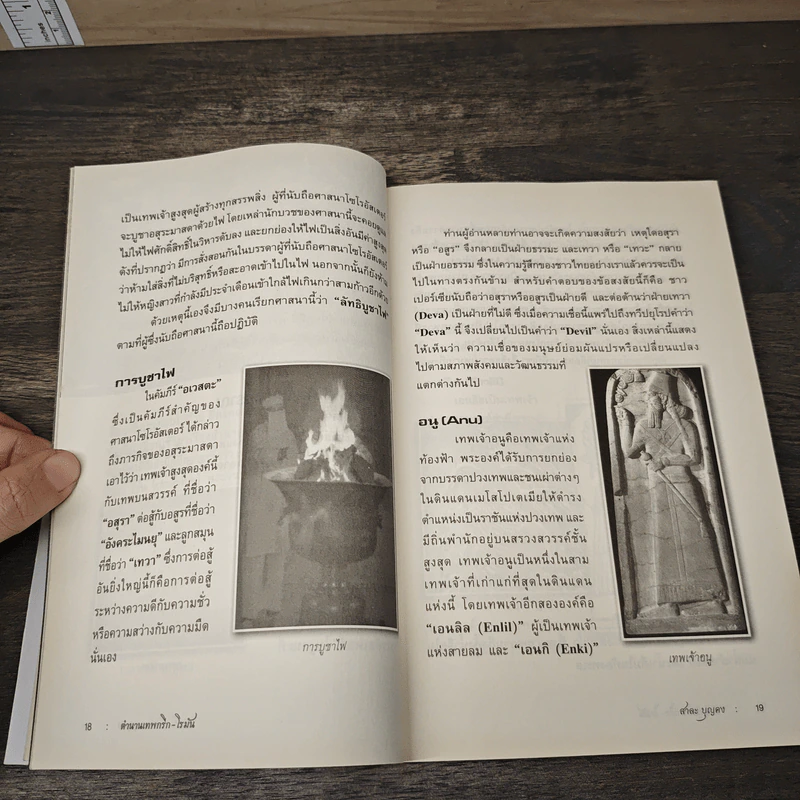 เป็นเทพเจ้าสูงสุดผู้สร้างทุกสรรพสิ่ง ผู้ที่นับถือศาสนาโซโรอัสเตอร์
จะบูชาอสุระมาสดาด้วยไฟ โดยเหล่านักบวชของศาสนานี้จะคอยดูแล
ไม่ให้ไฟศักดิ์สิทธิ์ในวิหารดับลง และยกย่องให้ไฟเป็นสิ่งอันมีค่าสูงสุด
ดังที่ปรากฏว่า มีการสั่งสอนกันในบรรดาผู้ที่นับถือศาสนาโซโรอัสเตอร์
ว่าห้ามใส่สิ่งที่ไม่บริสุทธิ์หรือสะอาดเข้าไปในไฟ นอกจากนั้นก็ยังห้าม
ไม่ให้หญิงสาวที่กำลังมีประจำเดือนเข้าใกล้ไฟเกินกว่าสามก้าวอีกด้วย
ด้วยเหตุนี้เองจึงมีบางคนเรียกศาสนานี้ว่า “ลัทธิบูชาไฟ”
ตามที่ผู้ซึ่งนับถือศาสนานี้ถือปฏิบัติ
การบูชาไฟ
ในคัมภีร์ “อเวสตะ”
ซึ่งเป็นคัมภีร์สำคัญของ
ศาสนาโซโรอัสเตอร์ ได้กล่าว
ถึงภารกิจของอสุระมาสดา
เอาไว้ว่า เทพเจ้าสูงสุดองค์นี้
กับเทพบนสวรรค์ ที่ชื่อว่า
“อสุรา” ต่อสู้กับอสูรที่ชื่อว่า
“อังคระไมนยุ” และลูกสมุน
ที่ชื่อว่า “เทวา” ซึ่งการต่อสู้
อันยิ่งใหญ่นี้ก็คือการต่อสู้
ระหว่างความดีกับความชั่ว
หรือความสว่างกับความมืด
นั่นเอง
การบูชาไฟ
18 : ตำนานเทพกรีก-โรมัน
ท่านผู้อ่านหลายท่านอาจจะเกิดความสงสัยว่า เหตุใดอสุรา
หรือ “อสูร” จึงกลายเป็นฝ่ายธรรมะ และเทวา หรือ “เทวะ” กลาย
เป็นฝ่ายอธรรม ซึ่งในความรู้สึกของชาวไทยอย่างเราแล้วควรจะเป็น
ไปในทางตรงกันข้าม สำหรับคำตอบของข้อสงสัยนี้ก็คือ ชาว
เปอร์เซียนับถือว่าอสุราหรืออสูรเป็นฝ่ายดี และต่อต้านว่าฝ่ายเทวา
(Deva) เป็นฝ่ายที่ไม่ดี ซึ่งเมื่อความเชื่อนี้แพร่ไปถึงทวีปยุโรปคำว่า
“Deva” นี้ จึงเปลี่ยนไปเป็นคำว่า “Devil” นั่นเอง สิ่งเหล่านี้แสดง
ให้เห็นว่า ความเชื่อของมนุษย์ย่อมผันแปรหรือเปลี่ยนแปลง
ไปตามสภาพสังคมและวัฒนธรรมที่
แตกต่างกันไป
อนู (Anu)
เทพเจ้าอนูคือเทพเจ้าแห่ง
ท้องฟ้า พระองค์ได้รับการยกย่อง
จากบรรดาปวงเทพและชนเผ่าต่างๆ
ในดินแดนเมโสโปเตเมียให้ดำรง
ตำแหน่งเป็นราชันแห่งปวงเทพ และ
มีถิ่นพำนักอยู่บนสรวงสวรรค์ชั้น
สูงสุด เทพเจ้าอนูเป็นหนึ่งในสาม
เทพเจ้าที่เก่าแก่ที่สุดในดินแดน
แห่งนี้ โดยเทพเจ้าอีกสององค์คือ
“เอนลิล (Enlil)” ผู้เป็นเทพเจ้า
แห่งสายลม และ “เอนกิ (Enki)”
เทพเจ้าอนู
สาละ บุญคง : 19